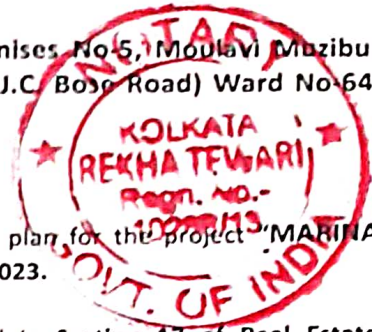 nises No-5, Moulavi Muzibu
J.C. Bose Road) Ward No-64
NOTARY
KOLKATA
REKHA TEWARI
Regn. No.-
GOVT. OF INDIA
plan for the project "MARINA
023.